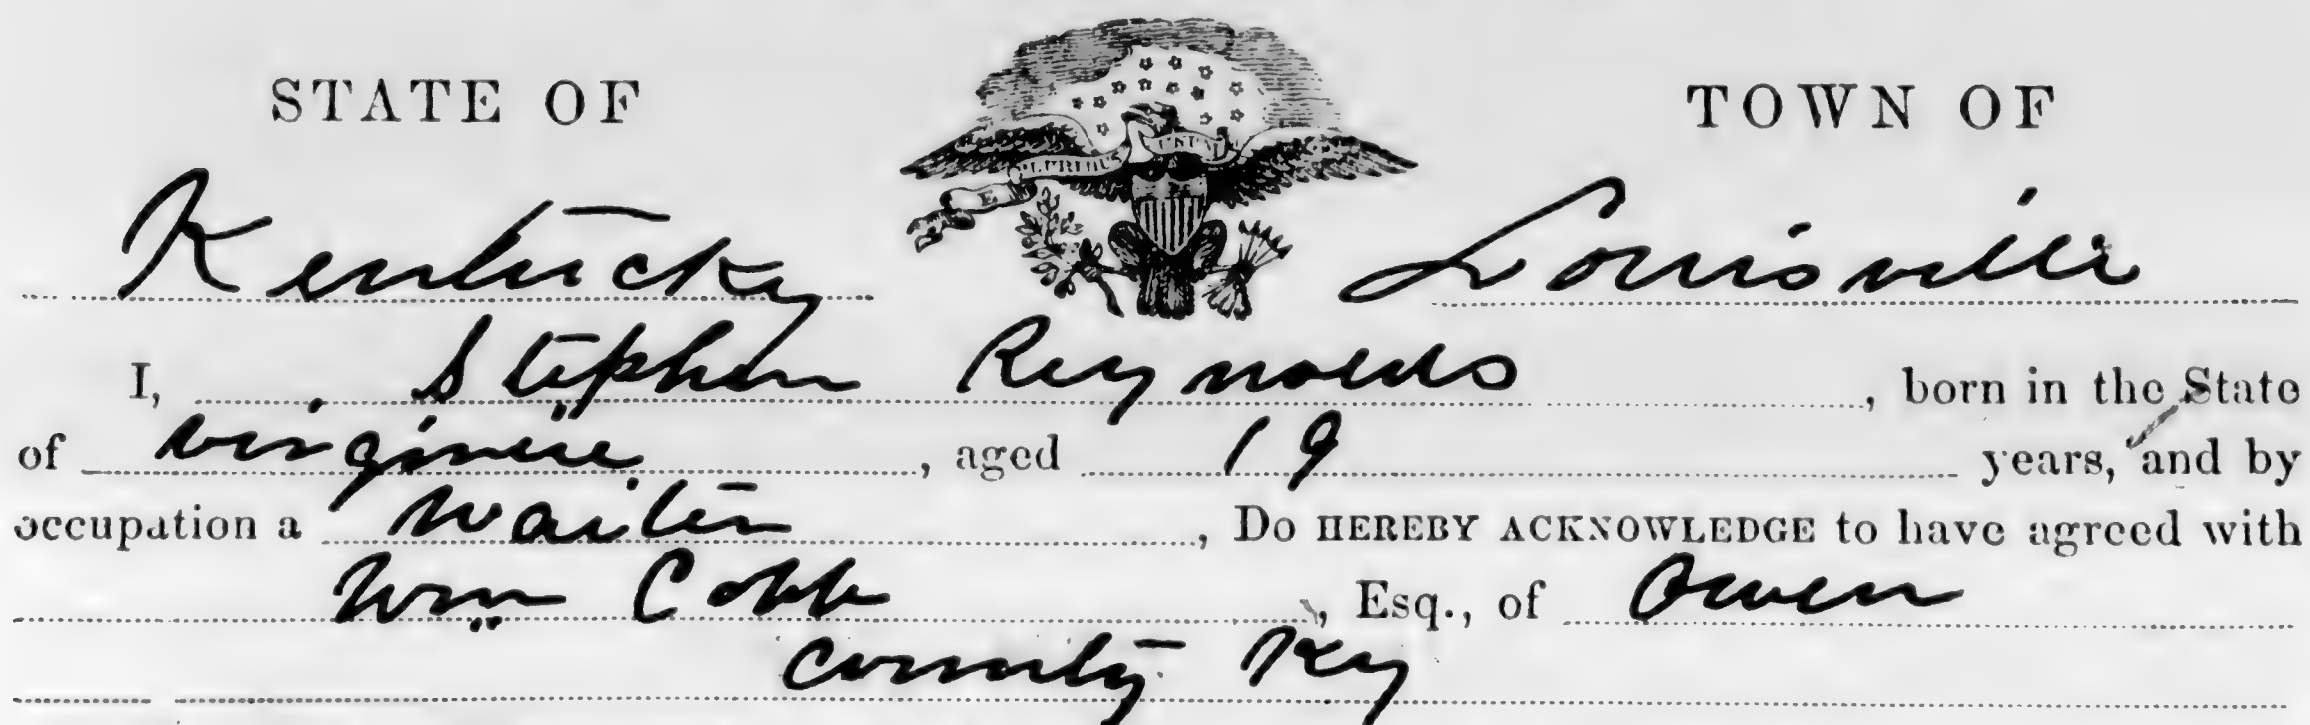 STATE OF
TOWN OF
E PLURIBUS UNUM
Kentucky
Louisville
I, Stephen Reynolds, born in the State
of Virginia, aged 19 years, and by
occupation a Waiter, Do HEREBY ACKNOWLEDGE to have agreed with
Wm Cobb, Esq., of Owen
County Ky